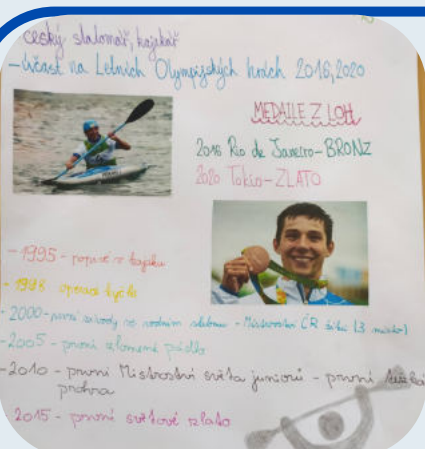 český slalomář, kajakář
- účast na Letních Olympijských hrách 2016, 2020
MEDAILE Z LOH
2016 Rio de Janeiro - BRONZ
2020 Tokio - ZLATO
- 1995 - poprvé v kajaku
- 1998 operace kyčle
- 2000 - první závody ve vodním slalomu - Mistrovství ČR žáků (3 místo)
- 2005 - první zlomené pádlo
- 2010 - první Mistrovství světa juniorů - první
prohra
- 2015 - první světové zlato